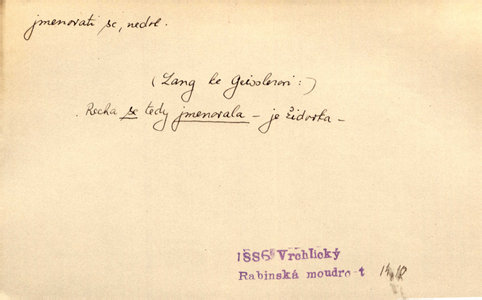 jmenovati se, nedok.
(Lang ke Geisslerovi:)
Recha se tedy jmenovala – je židovka –
1886 Vrchlický
Rabínská moudrost